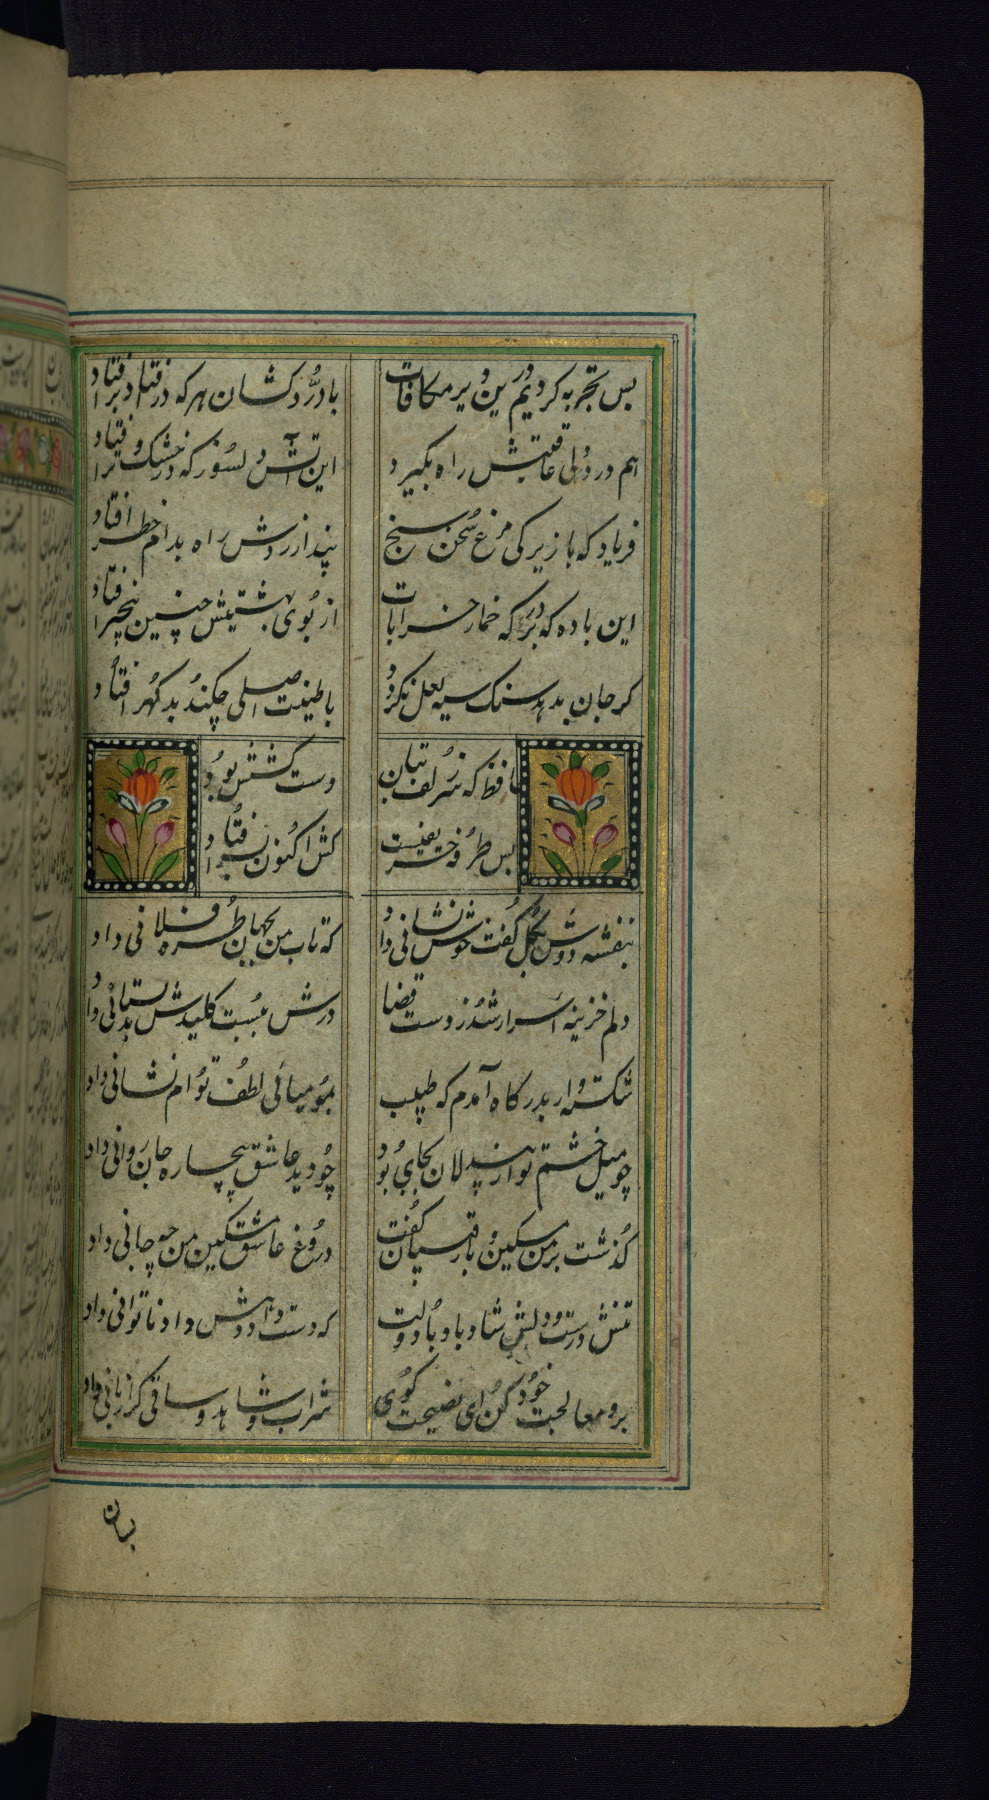 بس تجربه کردیم درین دیر مکافات با دُرد کشان هر که در افتاد بر افتاد
هم درد ولی عاقبتش راه بگیرد این آتش دلسوز که در خشک و تر افتاد
فریاد که با زیرکی مرغ سخن سنج پندار زدش راه بدام خطر افتاد
این باده که در خمار خرابات از بوی بهشتیش چنین بیخبر افتاد
گر جان بدهد سنک سیه لعل نکردد با طینت اصلی چکند بد گهر افتاد
حافظ که سر زلف بتان دست کشش بود
بس طرفه حریفیست کش اکنون بسر افتاد
بنفشه دوش بکل گفت خوش نشانی داد که تاب من بجهان طره فلانی داد
دلم خزینه اسرار شد ز دست قضا درش ببست کلیدش بدلستانی داد
شکسته وار بدرگاه آمدم که طبیب بمومیائی لطف توام نشانی داد
چو میل خشم تو از بیدلان بجای بود چو دید عاشق بیچاره جان روانی داد
گذشت بر من مسکین و با رقیبان گفت دروغ عاشق مسکین من چه جانی داد
تنش درست و دلش شاد باد با دولت که دست دادش و داد ناتوانی داد
برو معالجت خود کن ای نصیحت کوی شراب و شاهد و ساقی کرا زیانی داد
بسان